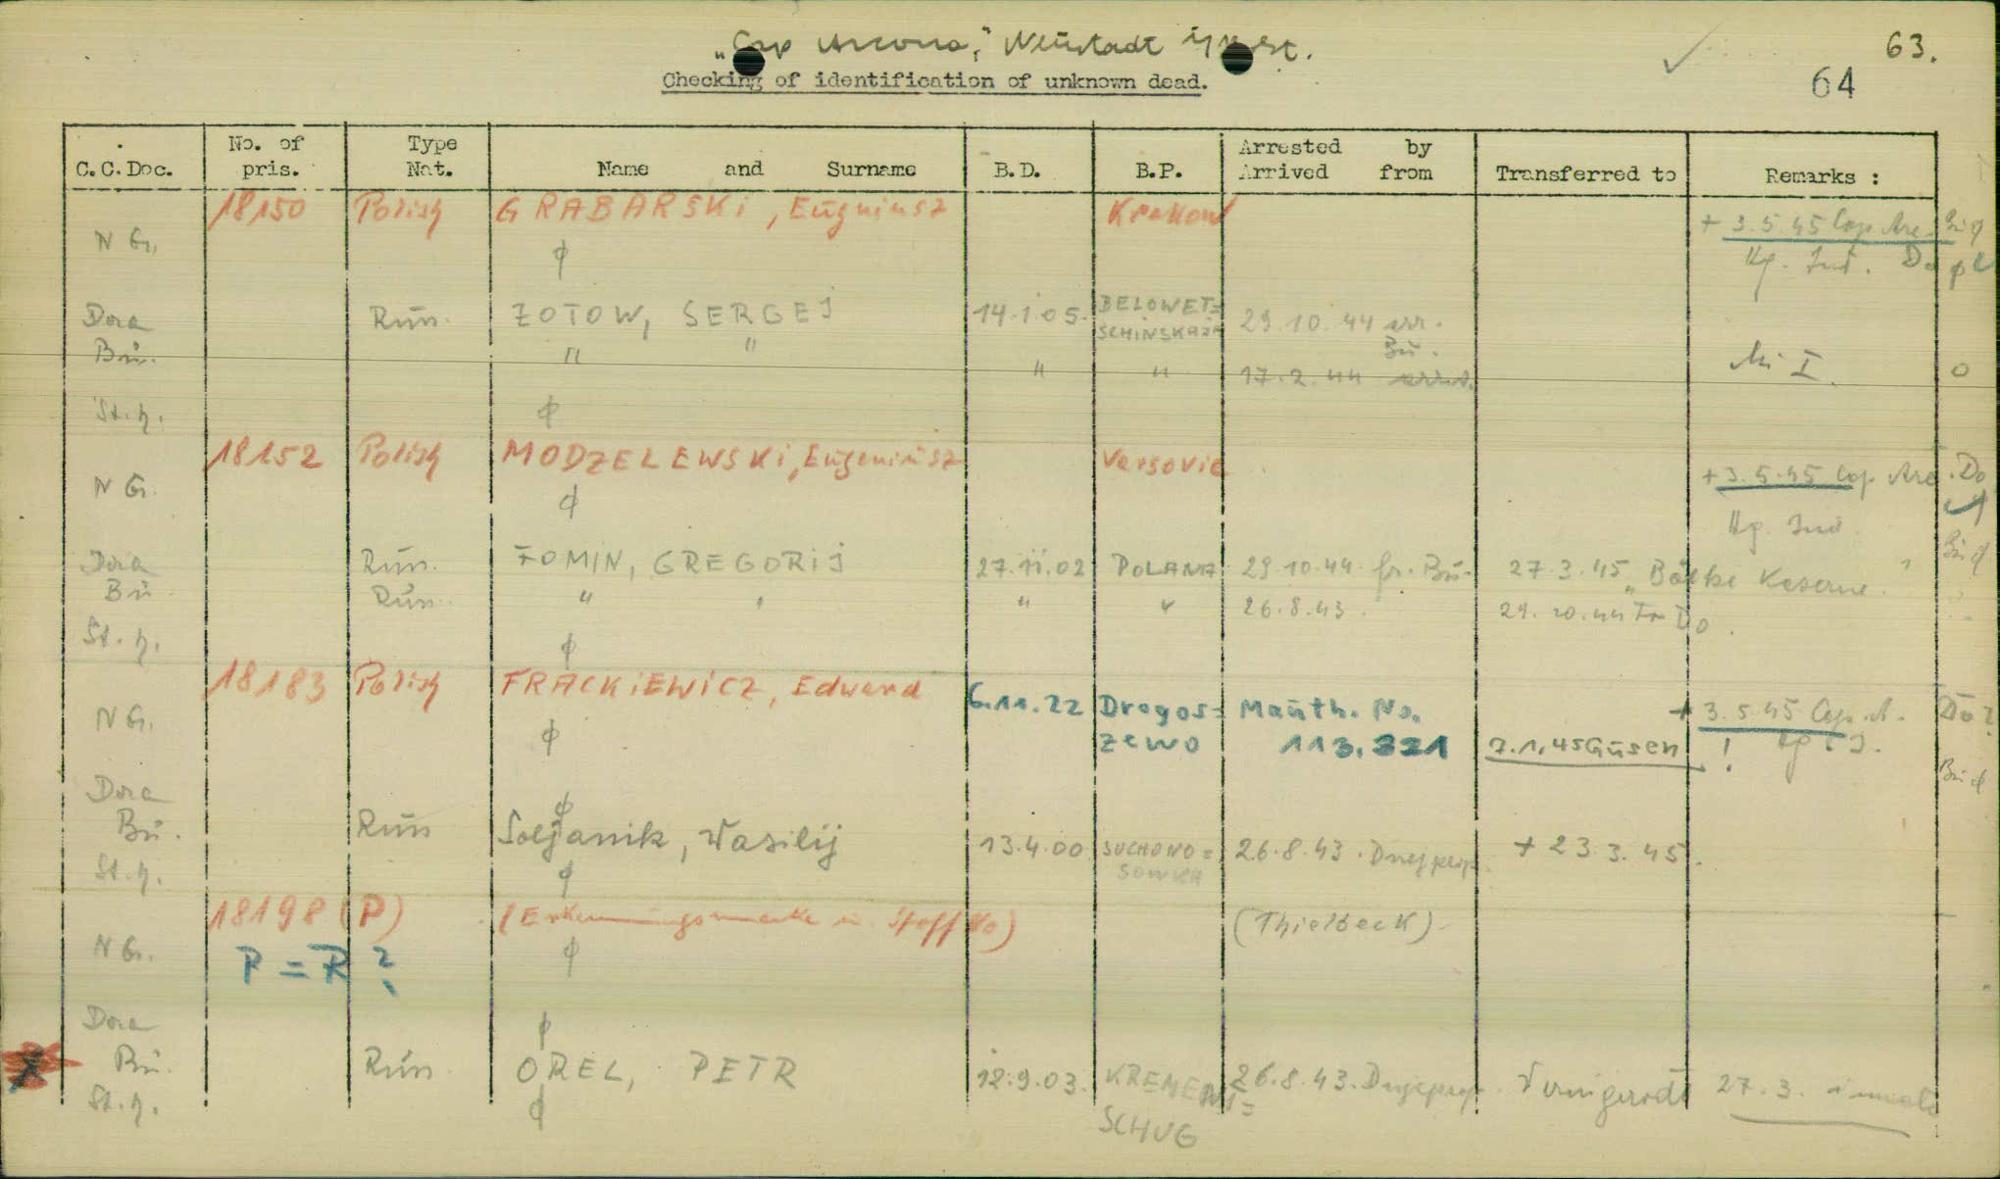 „Cap Arcona," Neustadt i/Holst.
63.
64
Checking of identification of unknown dead.
C.C.Doc. No. of pris. Type Nat. Name and Surname B.D. B.P. Arrested by Arrived from Transferred to Remarks :
18150 Polish GRABARSKi, Eugniusz Krakow
N G. ϕ + 3.5.45 Cap Arc.
Dora Rün. ZOTOW, SERGEJ 14.1.05. BELOWET= SCHINSKAJA 29.10.44 arr. Bu.
Bu. " " " " 17.2.44 I. o
St.h. ϕ
18152 Polish MODZELEWSKi, Eugeniusz Varsovie
N G. ϕ + 3.5.45 Cap. Arc. Do
Dora Rün. FOMIN, GREGORiJ 27.11.02 POLANA 29.10.44 fr. Bu. 27.3.45 „Bölke Kaserne"
Bu Rün. " " " " 26.8.43. 29.10.44 Tr Do.
St.h. ϕ
18183 Polish FRACKiEWiCZ, Edward 6.11.22 Drogos= zewo Mauth. No. 113.321 7.1.45 Gusen !
N G. ϕ + 3.5.45 Cap. A. Do?
Dora ϕ
Bu. Rün Soljanik, Wasilij 13.4.00 SUCHONO= SOWKA 26.8.43. Dnjeprop. + 23.3.45.
St.h. ϕ
18198 (P) (Erkennungsmarke u. Stoff No) (Thielbeck)
N G. P = R ? ϕ
Dora ϕ
X Bu. Rün OREL, PETR 12.9.03. KREMEN= SCHUG 26.8.43. Dnjeprop. Wernigerode 27.3.
St.h. ϕ